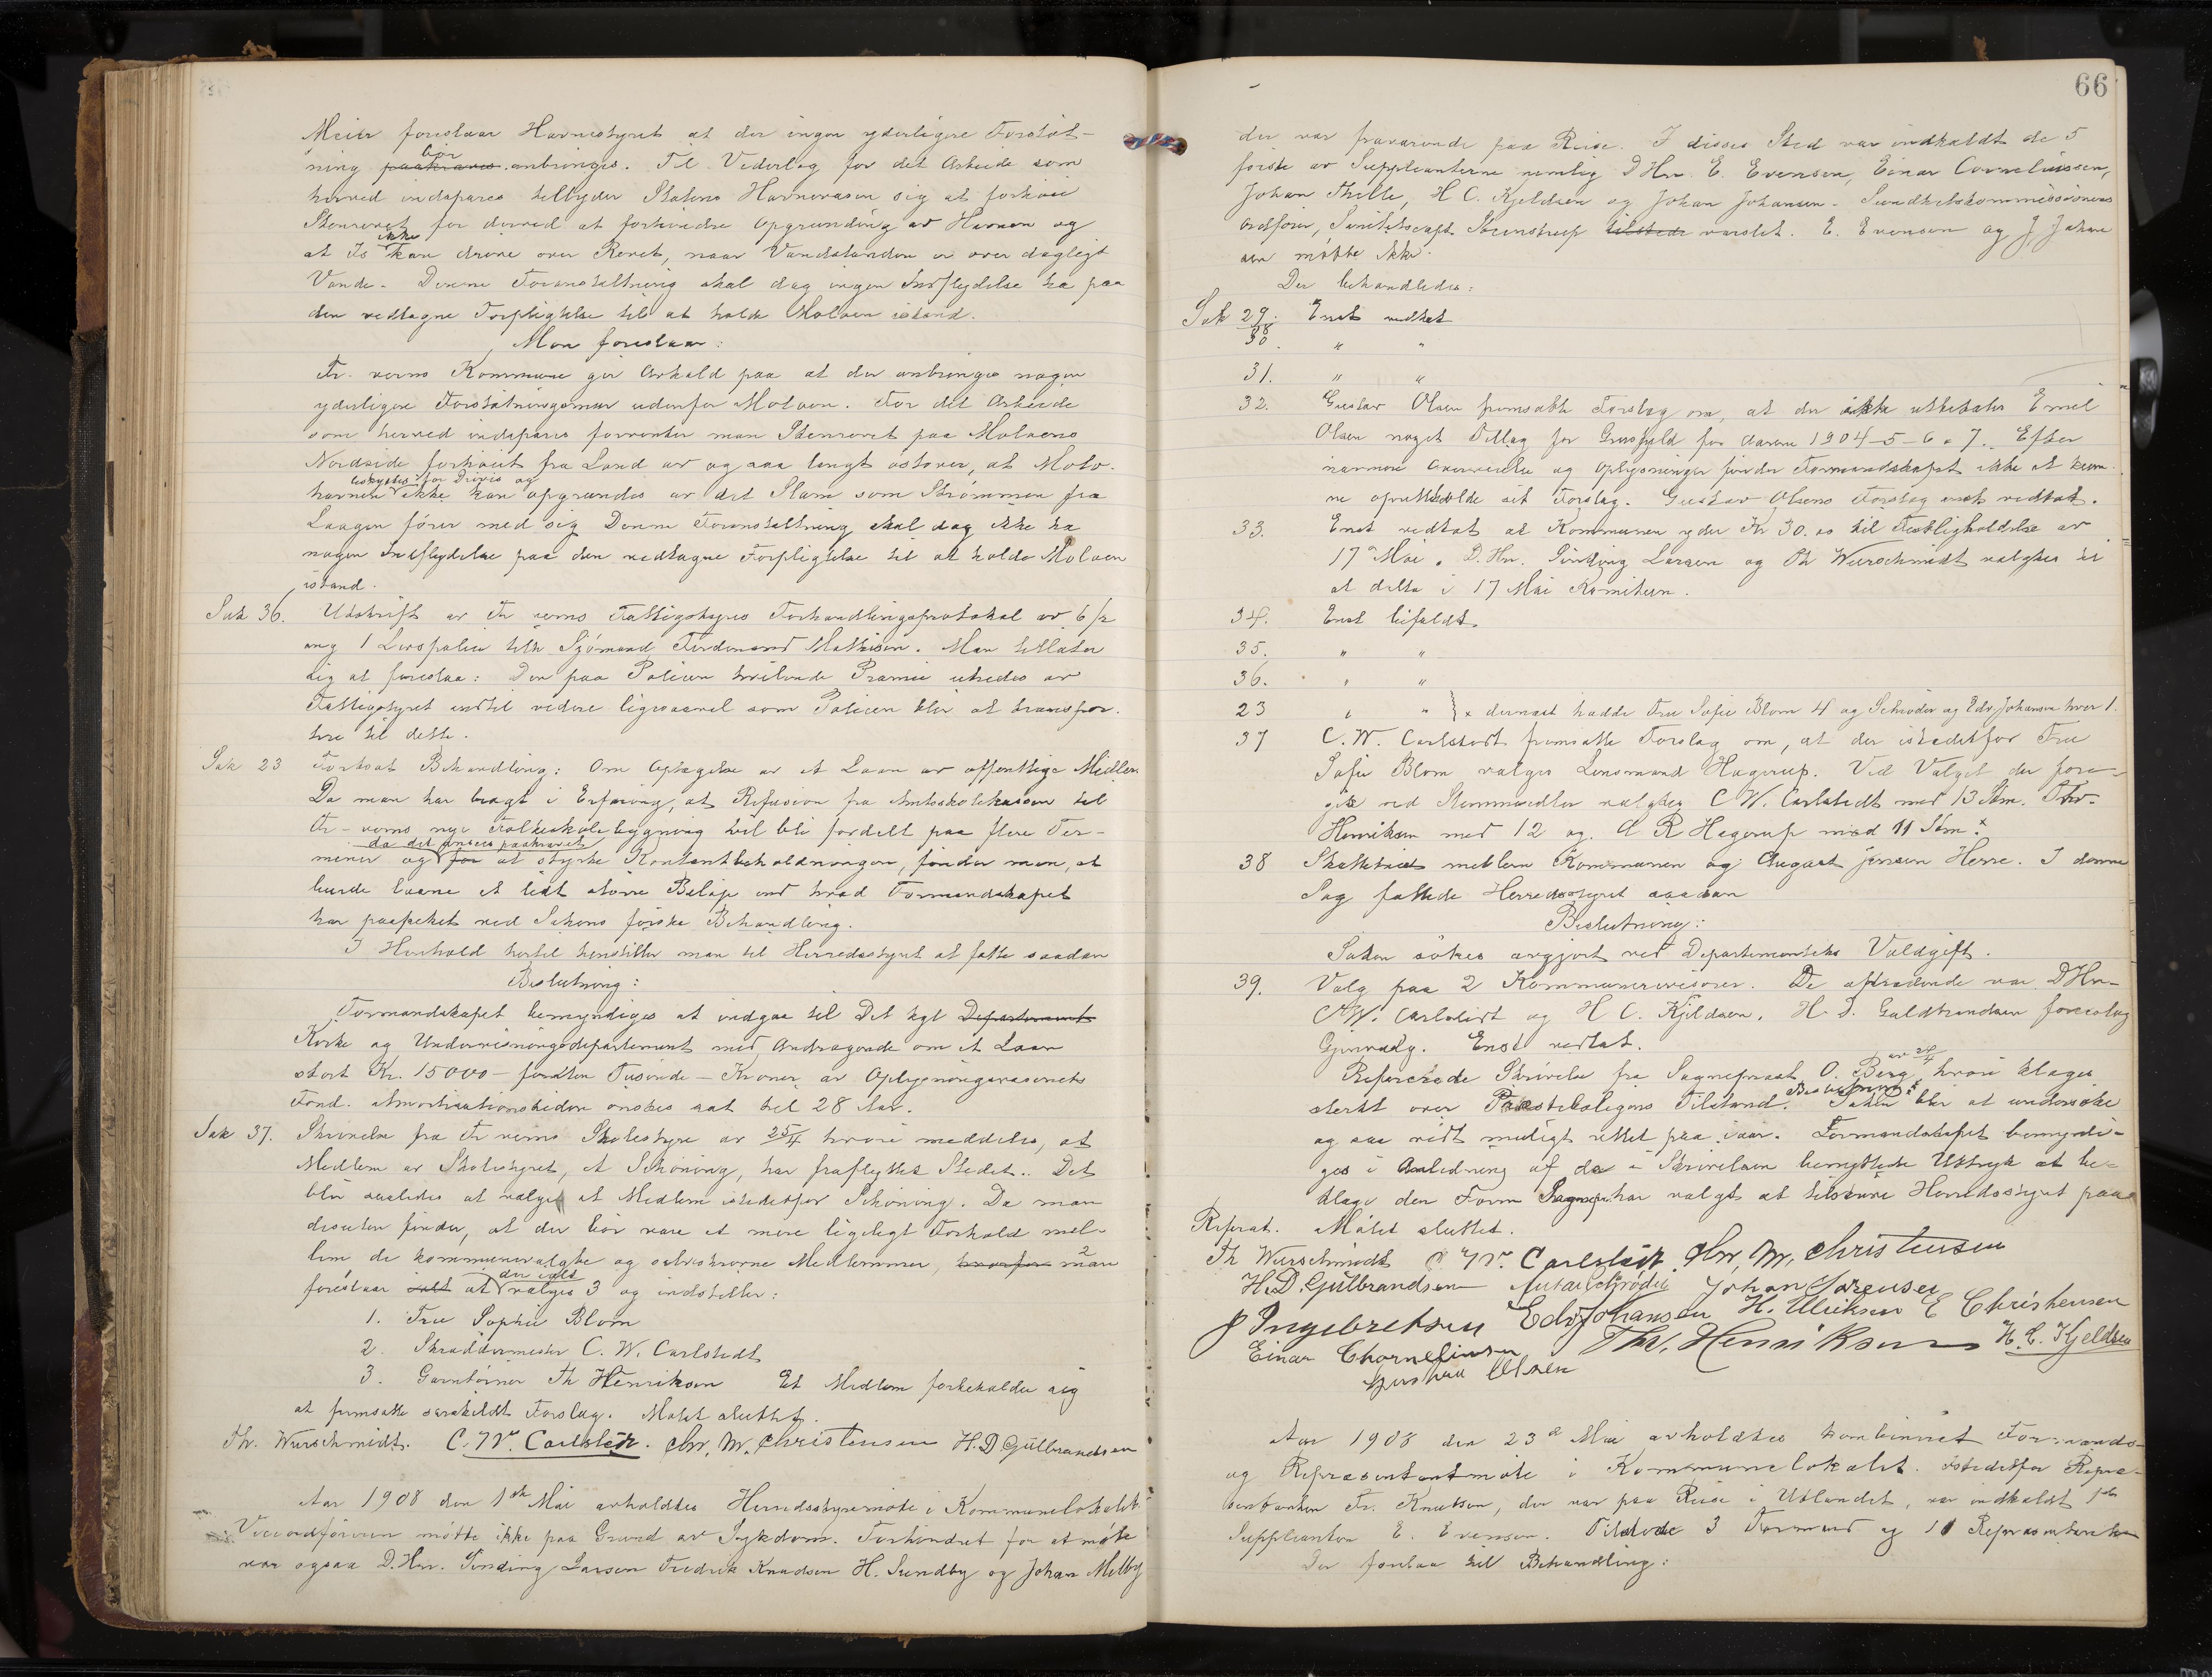 Meier foreslaar Havnestyret at der ingen yderligere Forstøt-
ning paakræves bør anbringes. Til Vederlag for det Arbeide som
herved indspares tilbyder Statens Havnevæsen sig at forhøie
Stenrevet for derved at forhindre Opgrunding av Havnen og
at Is ikke kan drive over Revet, naar Vandstanden er over dagligt
Vande. Denne Foranstaltning skal dog ingen Indflydelse ha paa
den vedtagne Forpligtelse til at holde Moloen istand.
Man foreslaar:
Fr. verns Kommune gir Avkald paa at der anbringes nogen
yderligere Forstøtningsmur udenfor Moloen. For det Arbeide
som herved indspares forventer man Stenrevet paa Moloens
Nordside forhøiet fra Land av og saa langt østover, at Molo-
havnen beskyttes for Drivis og ikke kan opgrundes av det Slam som Strømmen fra
Laagen fører med sig. Denne Foranstaltning skal dog ikke ha
nogen Indflydelse paa den vedtagne Forpligtelse til at holde Moloen
istand.
Sak 36. Utskrift av Fr verns Fattigstyres Forhandlingsprotokol av 6/2
ang 1 Livspolice tilh Sjømand Ferdinand Mathisen. Man tillater
sig at foreslaa: Den paa Policen hvilende Præmie utredes av
Fattigstyret indtil videre ligesaavel som Policen blir at transpor-
tere til dette.
Sak 23 Fortsat Behandling: Om Optagelse av et Laan av offentlige Midler
Da man har bragt i Erfaring, at Refusion fra Amtsskolekassen til
Fr-verns nye Folkeskolebygning vil bli fordelt paa flere Ter-
miner og da det ansees paakrævet for at styrke Kontantbeholdningen, finder man, at
burde laane et lidt større Beløp end hvad Formandskapet
har paapeket ved Sakens første Behandling.
I Henhold hertil henstiller man til Herredsstyret at fatte saadan
Beslutning:
Formandskapet bemyndiges at indgaa til Det kgl Departements
Kirke og Undervisningsdepartement med Andragende om et Laan
stort Kr. 15000 – femten Tusinde – Kroner av Oplysningsvæsenets
Fond. Amortisationstiden ønskes sat til 28 Aar.
Sak 37. Skrivelse fra Fr verns Skolestyre av 25/4 hvori meddeles, at
Medlem av Skolestyret, A Schøning, har fraflyttet Stedet. Det
blir saaledes at vælge et Medlem istedetfor Schøning. Da man
desuten finder, at der bør være et mere ligeligt Forhold mel-
lem de kommunevalgte og selvskrevne Medlemmer, hvorfor man
foreslaar at der ialt vælges 3 og indstiller:
1. Fru Sophie Blom
2. Skræddermester C. W. Carlstedt
3. Garntørrer Th Henriksen Et Medlem forbeholder sig
at fremsætte særskildt Forslag. Møtet sluttet.
Th. Wurschmidt. C. W. Carlstedt. Chr. M. Christensen H. D Gulbrandsen
Aar 1908 den 1ste Mai avholdtes Herredsstyremøte i Kommunelokalet
Viceordføreren møtte ikke paa Grund av Sykdom. Forhindret for at møte
var ogsaa D.Hrr. Sinding Larsen Fredrik Knudsen H. Sundby og Johan Melby
66
der var fraværende paa Reise. I disses Sted var indkaldt de 5
første av Suppleanterne nemlig D Hrr. E. Evensen, Einar Corneliussen,
Johan Thille, H C. Kjeldsen og Johan Johansen. Sundhetskommissionens
Ordfører, Sanitetscapt. Steenstrup tilstede varslet. E. Evensen og J Johan
sen møtte ikke.
Der behandledes:
Sak 29. Enst vedtat
30. " "
31. " "
32. Gustav Olsen fremsatte Forslag om, at der ikke utbetales Emil
Olsen noget Tillæg for Grusfyld for Aarene 1904-5-6 o 7. Efter
nærmere Overveielse og Oplysninger finder Formandskapet ikke at kun-
ne opretholde sit Forslag. Gustav Olsens Forslag enst vedtat.
33. Enst vedtat at Kommunen yder Kr 30.00 til Festligholdelse av
17 Mai. D.Hrr. Sinding Larsen og Th Wurschmidt valgtes til
at delta i 17 Mai Komiteen.
34. Enst bifaldt.
35. " "
36. " "
23 " " } x dernæst hadde Fru Sofie Blom 4 og Schrøder og Edv. Johansen hver 1.
37 C. W. Carlstedt fremsatte Forslag om, at der istedetfor Fru
Sofie Blom vælges Lensmand Hagerup. Ved Valget der fore-
gik ved Stemmesedler valgtes C W. Carlstedt med 13 Stm. Thv.
Henriksen med 12 og A R Hagerup med 11 Stm. x
38 Skattetvist mellem Kommunen og August Jensen Herre. I denne
Sag fattede Herredsstyret saadan
Beslutning:
Saken søkes avgjort ved Departementets Voldgift.
39. Valg paa 2 Kommunerevisorer. De aftrædende var D Hrr.
C. W. Carlstedt og H C. Kjeldsen. H. D. Guldbrandsen foreslog
Gjenvalg. Enst vedtat.
Refererede Skrivelse fra Sogneprest O. Berg av 24/4 hvori klages
sterkt over Prestebolegens Tilstand. Beslutning: Saken blir at undersøke
og saa vidt muligt rettet paa i vaar. Formandskapet bemyndi-
ges i Anledning af de i Skrivelsen benyttede Uttryk at be-
klage den Form Sognepr. har valgt at tilskrive Herredsstyret paa
Referat. Møtet sluttet.
Th Wurschmidt C. W. Carlstedt. Chr. M. Christensen
H. D. Gulbrandsen Schrøder Johan Sørensen
J Ingebretsen Edv Johansen H. Ulriksen E Christensen
Einar Chorneliusen Thv. Henriksen H. C. Kjeldsen
Gustav Olsen
Aar 1908 den 23de Mai avholdtes kombinert Formands-
og Repræsentantmøte i Kommunelokalet. Istedetfor Repræ-
sentanten Fr. Knutsen, der var paa Reise i Utlandet, var indkaldt 1ste
Suppleanten E. Evensen. Tilstede 3 Formænd og 11 Repræsentanter
Der forelaa til Behandling: